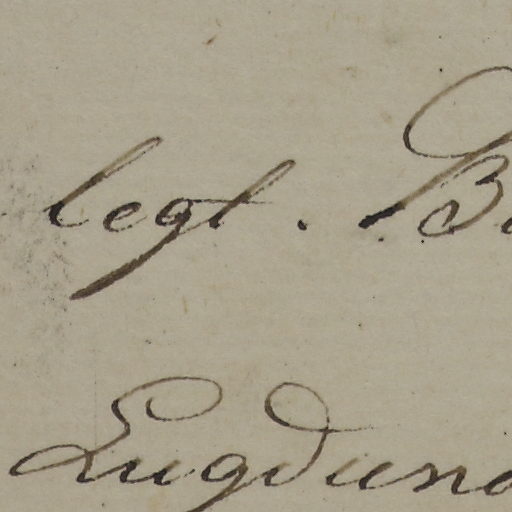 legt. B
Lugduno